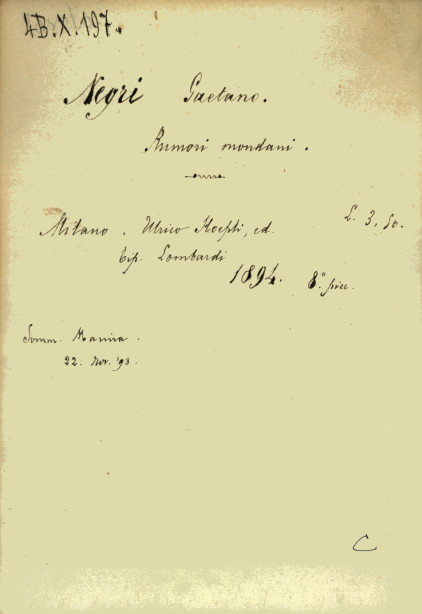 4B.X.197.
Negri Gaetano.
Rumori mondani.
Milano. Ulrico Hoepli, ed. L. 3,50.
Tip. Lombardi
1894. 8° picc.
22. Nov. '93
C